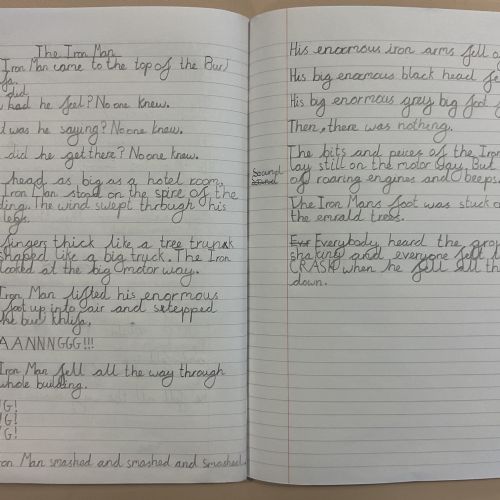 The Iron Man
Iron Man came to the top of the Burj
did
had he feel? No one knew.
was he saying? No one knew.
did he get there? No one knew.
head as big as a hotel room,
Iron Man stood on the spire of the
ding. The wind swept through his
legs.
fingers thick like a tree trunk
shaped like a big truck. The Iron
looked at the big motor way.
Iron Man lifted his enormous
foot up into air and stepped
the burj khlifa,
AANNNGGG!!!
Iron Man fell all the way through
whole building.
G!
G!
G!
ron Man smashed and smashed and smashed.
His enormous iron arms fell o
His big enormous black head fe
His big enormous grey big foot f
Then, there was nothing.
The bits and peices of the Iron
lay still on the motor way, But
sound
of roaring engines and beeps.
The Iron Mans foot was stuck o
the emrald trees.
Everybody heard the gro
shaking and everyone felt t
CRASH when he fell all th
down.